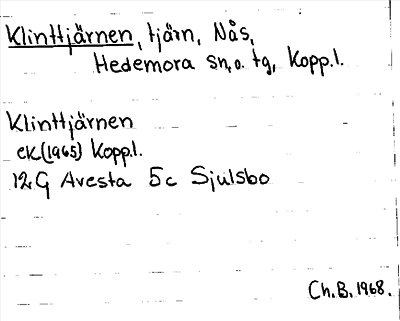 Klinttjärnen, tjärn, Nås,
Hedemora sn, o. tg, Kopp.l.
Klinttjärnen
ek(1965) Kopp.l.
12G Avesta 5c Sjulsbo
Ch.B. 1968.